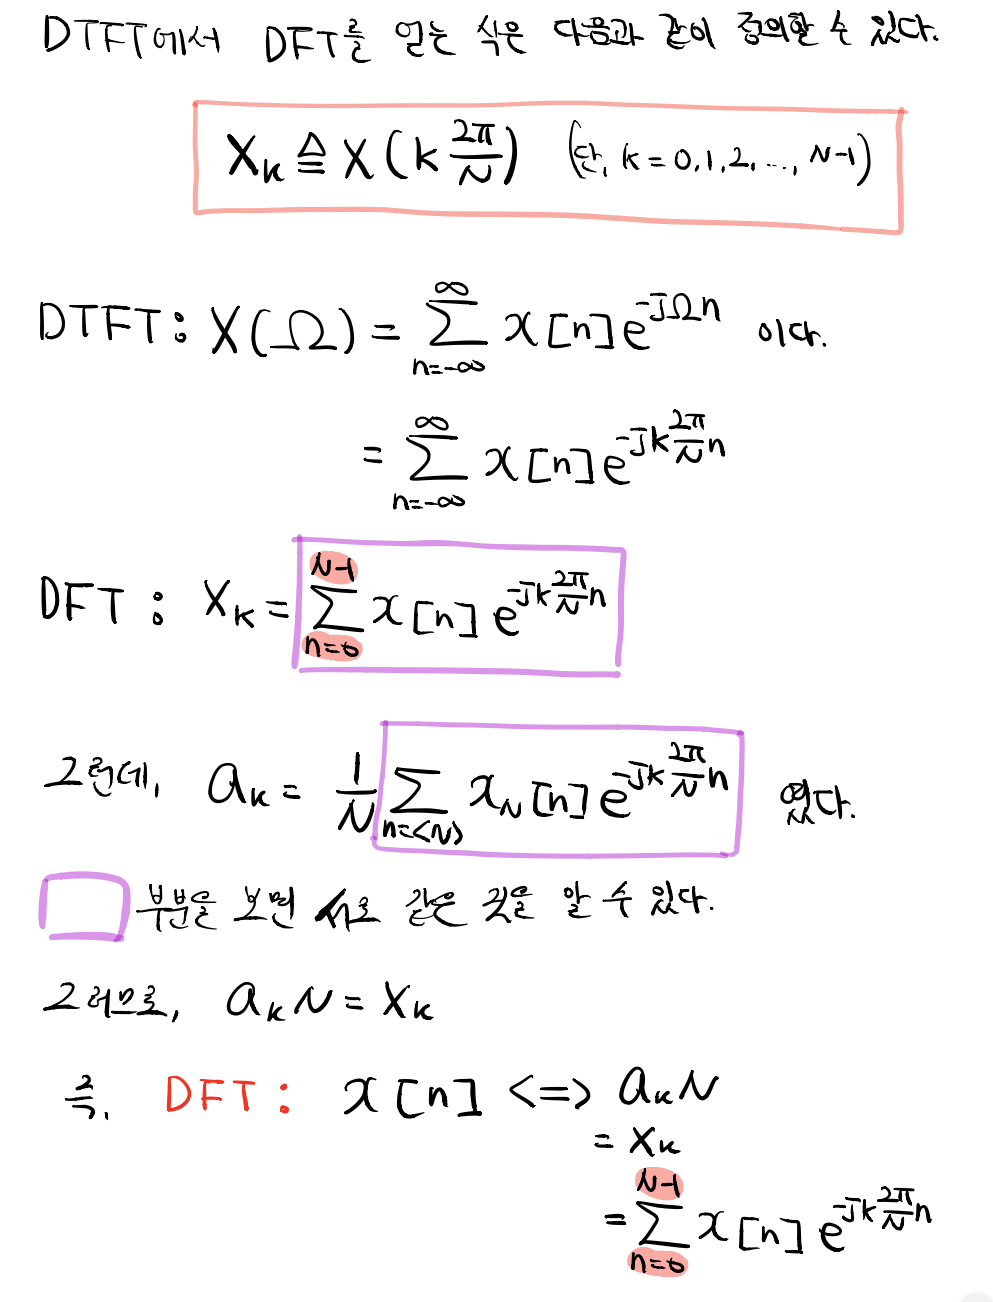 DTFT에서 DFT를 얻는 식은 다음과 같이 정의할 수 있다.
X_k ≜ X(k 2π/N) (단, k = 0, 1, 2, ..., N-1)
DTFT: X(Ω) = ∑_{n=-∞}^{∞} x[n] e^{-jΩn} 이다.
= ∑_{n=-∞}^{∞} x[n] e^{-jk 2π/N n}
DFT : X_k = ∑_{n=0}^{N-1} x[n] e^{-jk 2π/N n}
그런데, a_k = 1/N ∑_{n=<N>} x_N[n] e^{-jk 2π/N n} 였다.
부분을 보면 서로 같은 것을 알 수 있다.
그러므로, a_k N = X_k
즉, DFT : x[n] <=> a_k N
= X_k
= ∑_{n=0}^{N-1} x[n] e^{-jk 2π/N n}